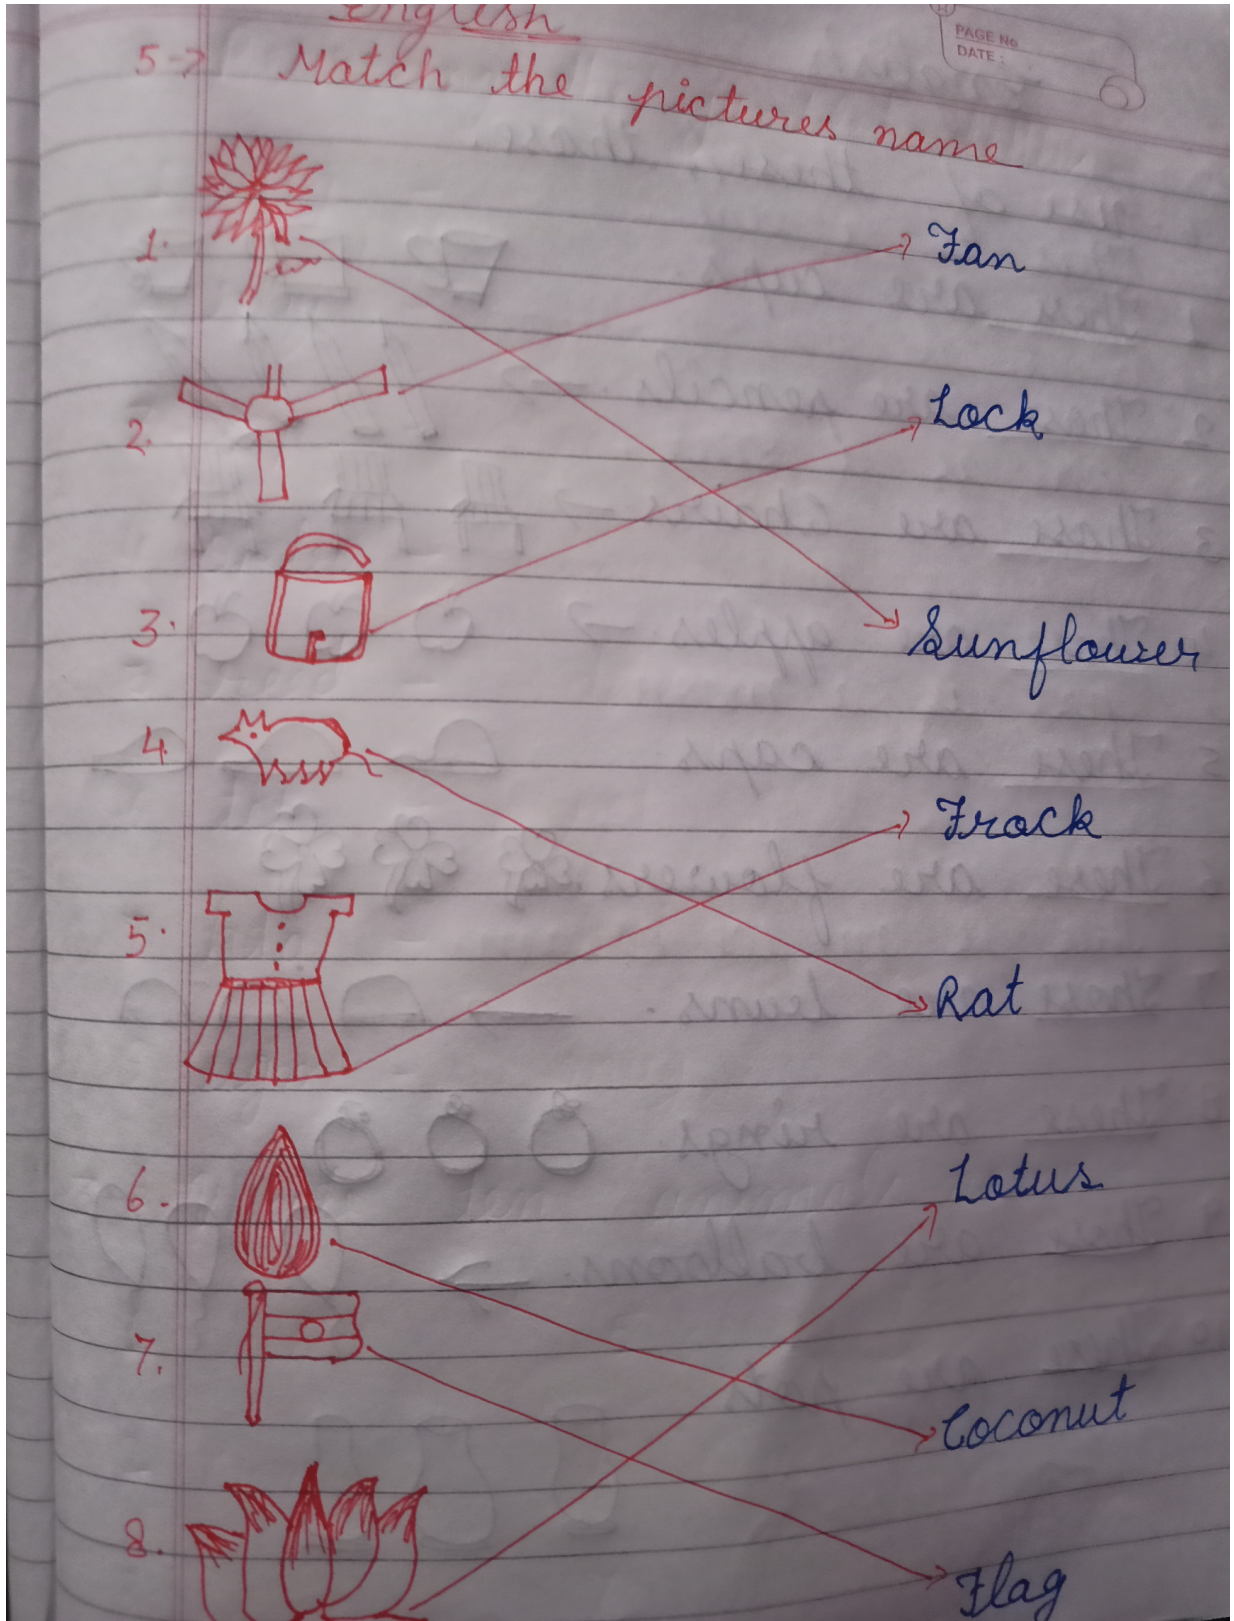 English
PAGE No.
DATE :
5-> Match the pictures name
1. Fan
2. Lock
3. Sunflower
4. Frock
5. Rat
6. Lotus
7. Coconut
8. Flag